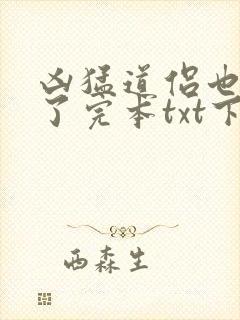 凶猛道侣也
了完本txt下
西森生